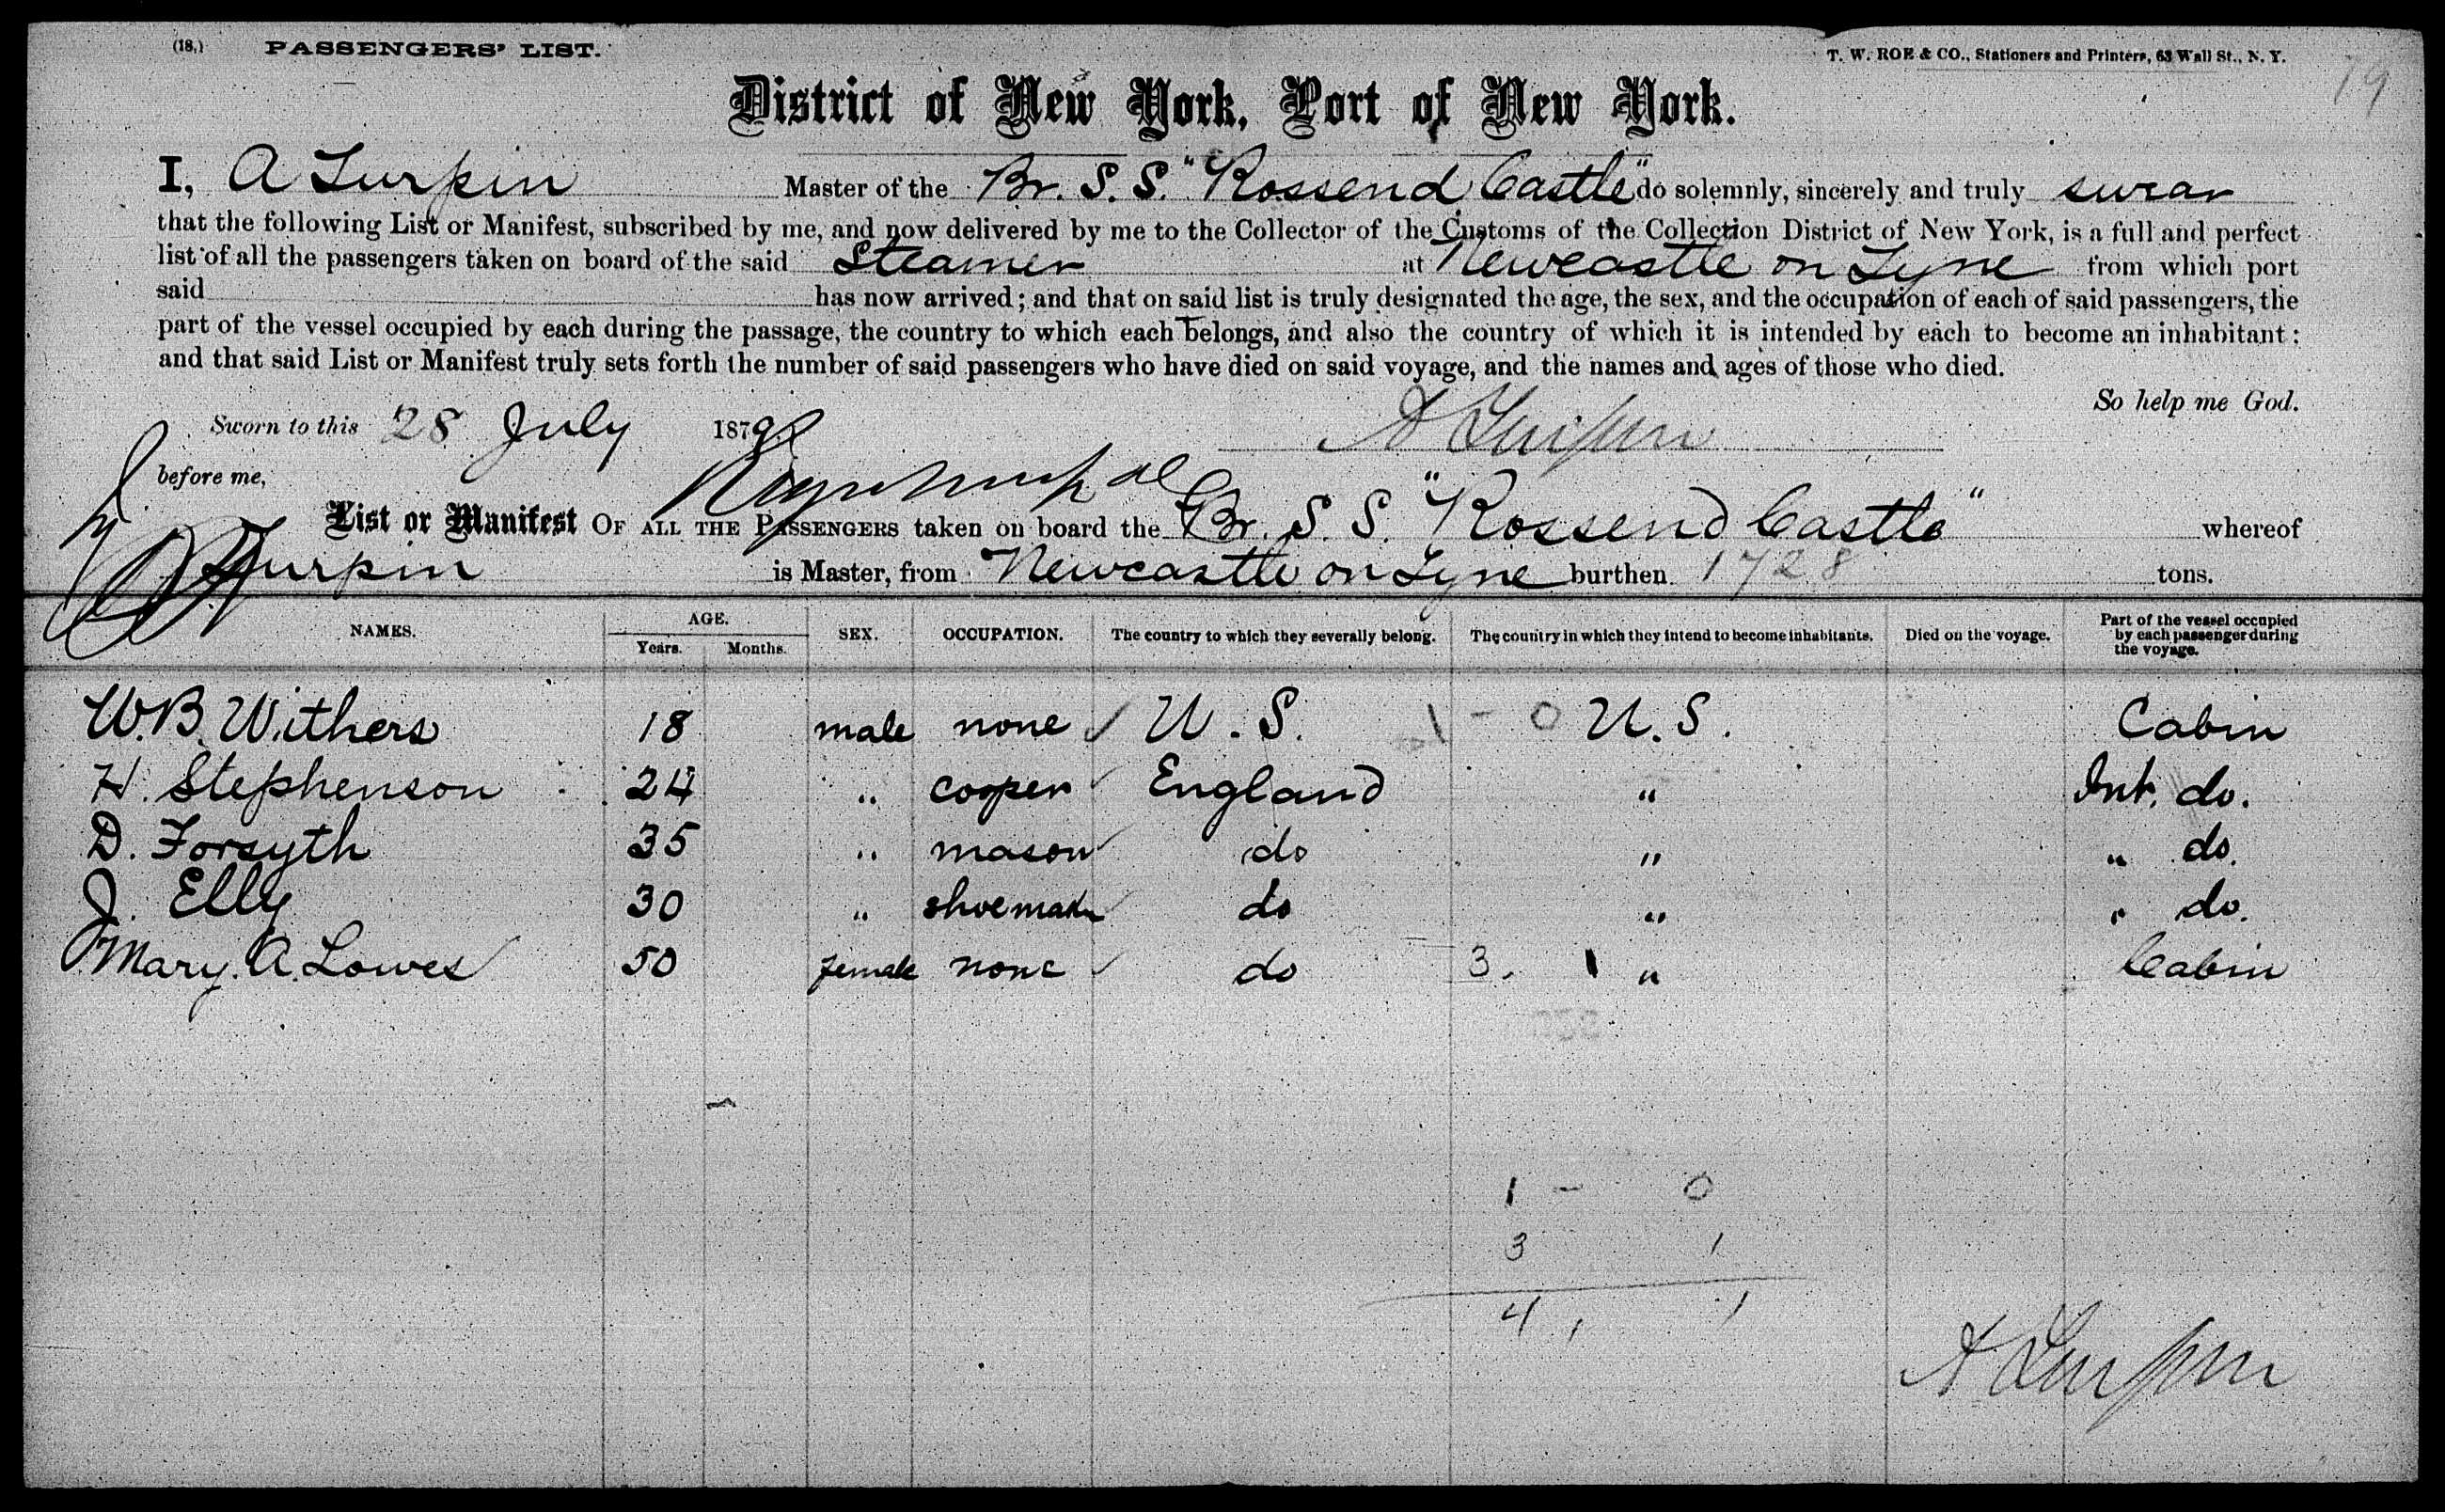 (18.) PASSENGERS' LIST. T. W. ROE & CO., Stationers and Printers, 63 Wall St., N. Y.
79
District of New York, Port of New York.
I, A Turpin Master of the Br. S. S. "Rossend Castle" do solemnly, sincerely and truly swear
that the following List or Manifest, subscribed by me, and now delivered by me to the Collector of the Customs of the Collection District of New York, is a full and perfect
list of all the passengers taken on board of the said Steamer at Newcastle on Tyne from which port
said has now arrived; and that on said list is truly designated the age, the sex, and the occupation of each of said passengers, the
part of the vessel occupied by each during the passage, the country to which each belongs, and also the country of which it is intended by each to become an inhabitant;
and that said List or Manifest truly sets forth the number of said passengers who have died on said voyage, and the names and ages of those who died.
So help me God.
Sworn to this 28 July 1879 A Turpin
before me,
List or Manifest OF ALL THE PASSENGERS taken on board the Br. S. S. "Rossend Castle" whereof
A Turpin is Master, from Newcastle on Tyne burthen 1728 tons.
NAMES. AGE. Years. Months. SEX. OCCUPATION. The country to which they severally belong. The country in which they intend to become inhabitants. Died on the voyage. Part of the vessel occupied by each passenger during the voyage.
W. B. Withers 18 male none U. S. 1 - 0 U. S. Cabin
H. Stephenson 24 " cooper England " Int. do.
D. Forsyth 35 " mason do " " do.
J. Elly 30 " shoemaker do " " do.
Mary. A. Lowes 50 female none do 3. 1 " Cabin
1 - 0
3 1
4 , 1
A Turpin